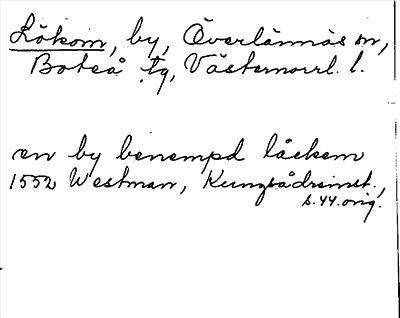 Lökom, by, Överlännäs sn,
Boteå tg, Västernorrl. l.
en by benempd låckem
1552 Westman, Kungsådreinst.,
s. 44. orig.